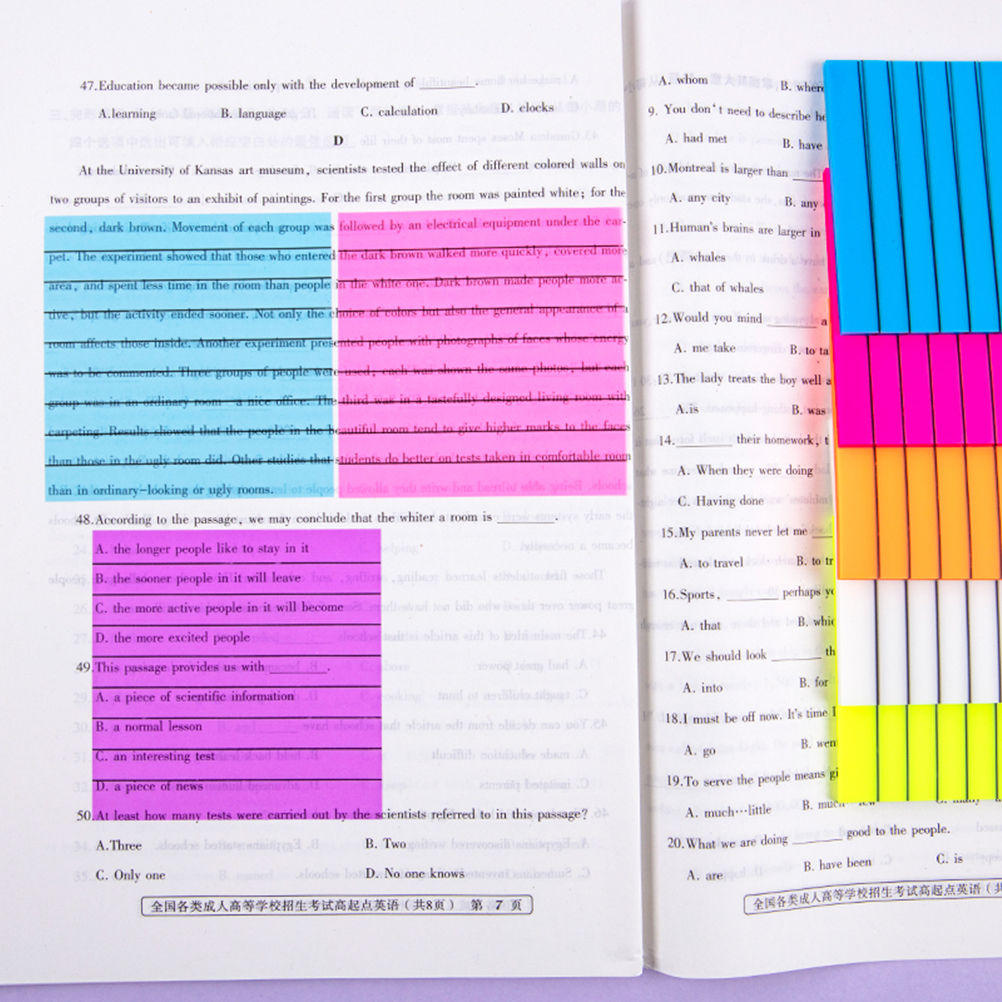 47.Education became possible only with the development of ________.
A.learning B. language C. calculation D. clocks
D
At the University of Kansas art museum, scientists tested the effect of different colored walls on
two groups of visitors to an exhibit of paintings. For the first group the room was painted white; for the
second, dark brown. Movement of each group was followed by an electrical equipment under the car-
pet. The experiment showed that those who entered the dark brown walked more quickly, covered more
area, and spent less time in the room than people in the white one. Dark brown made people more ac-
tive, but the activity ended sooner. Not only the choice of colors but also the general appearance of a
room affects those inside. Another experiment presented people with photographs of faces whose energy
was to be commented. Three groups of people were used; each was shown the same photos, but each
group was in an ordinary room—a nice office. The third was in a tastefully designed living room with
carpeting. Results showed that the people in the beautiful room tend to give higher marks to the faces
than those in the ugly room did. Other studies that students do better on tests taken in comfortable room
than in ordinary-looking or ugly rooms.
48.According to the passage, we may conclude that the whiter a room is ________.
A. the longer people like to stay in it
B. the sooner people in it will leave
C. the more active people in it will become
D. the more excited people
49.This passage provides us with ________.
A. a piece of scientific information
B. a normal lesson
C. an interesting test
D. a piece of news
50.At least how many tests were carried out by the scientists referred to in this passage?
A.Three B. Two
C. Only one D. No one knows
全国各类成人高等学校招生考试高起点英语(共8页) 第 7 页
A. whom B. where
9. You don't need to describe he
A. had met B. have
10.Montreal is larger than ____
A. any city B. any
11.Human's brains are larger in
A. whales
C. that of whales
12.Would you mind ________ a
A. me take B. to ta
13.The lady treats the boy well a
A.is B. was
14.________ their homework, t
A. When they were doing
C. Having done
15.My parents never let me
A. to travel B. to tr
16.Sports, ________ perhaps yo
A. that B. whic
17.We should look ________ th
A. into B. for
18.I must be off now. It's time I
A. go B. wen
19.To serve the people means gi
A. much…little B. much
20.What we are doing ________ good to the people.
A. are B. have been C. is
全国各类成人高等学校招生考试高起点英语(共